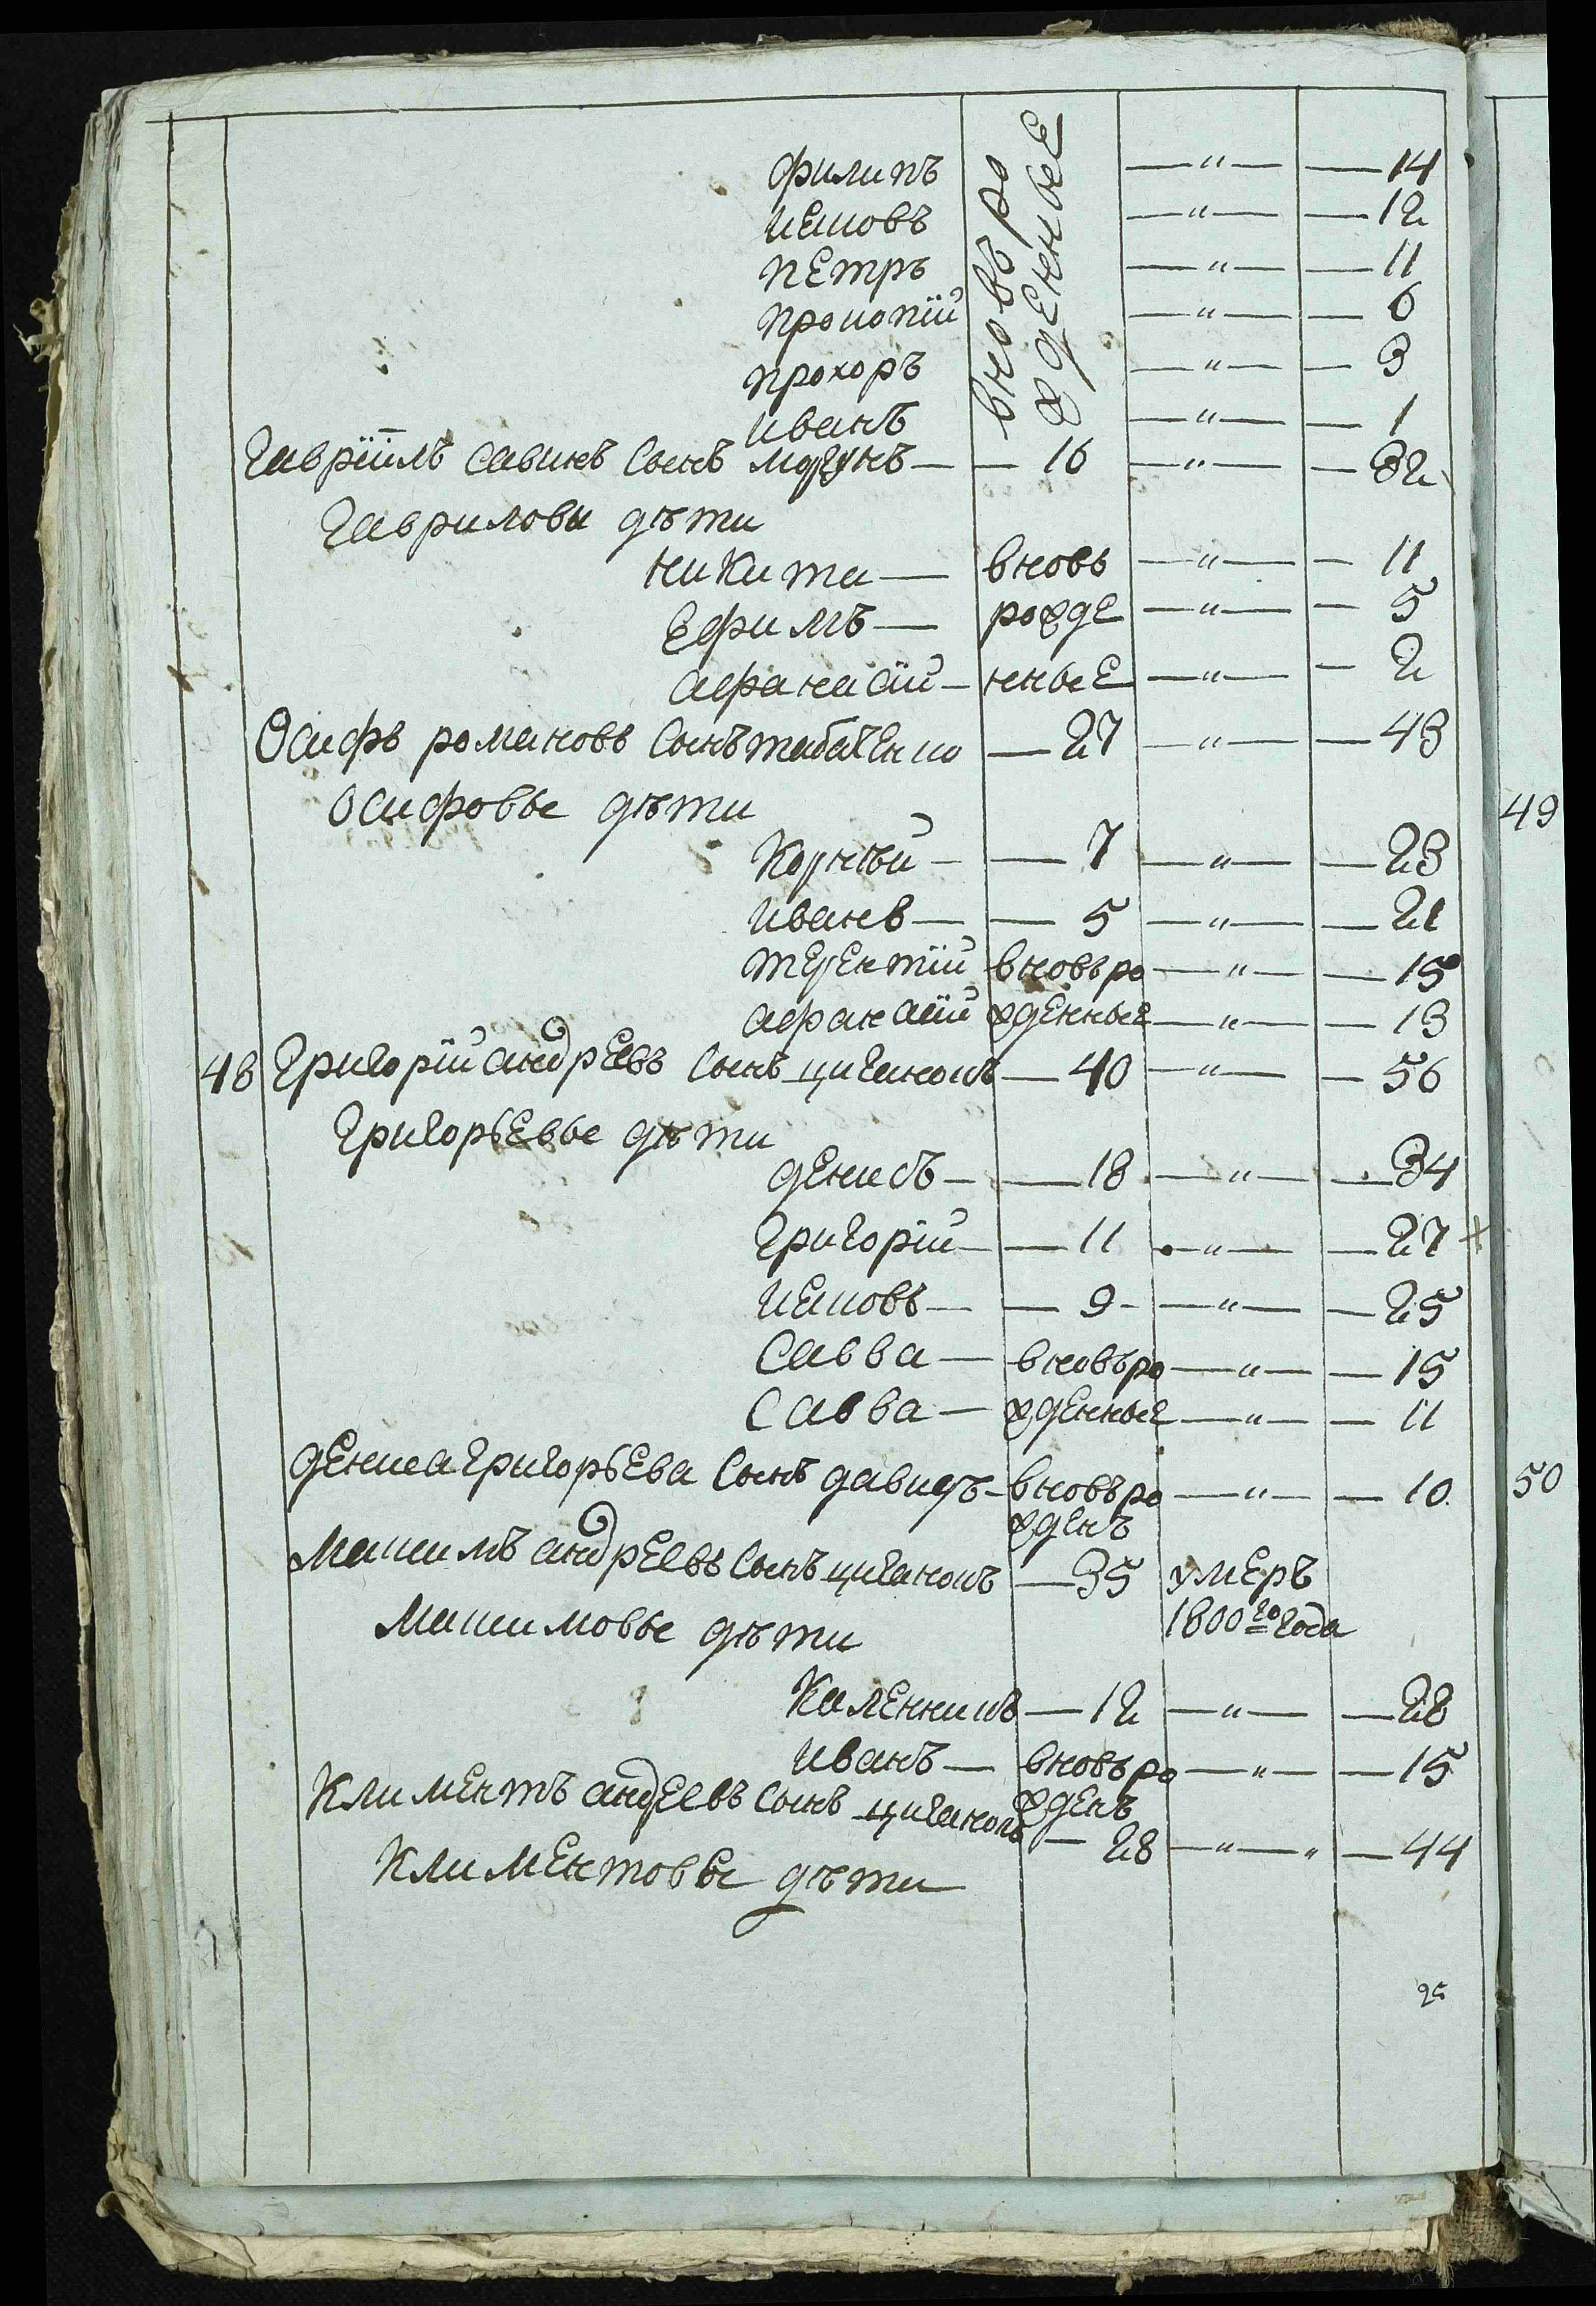 филипъ —"— —14
иаковъ вновь ро —"— —12
петръ жденные —"— —11
прокопїй —"— —6
прохоръ —"— —3
иванъ —"— —1
Гаврїилъ савинъ сынъ моргунъ— —16 —"— —32
Гаврилови дѣти
никита— вновь —"— —11
Ефимъ— рожде —"— —5
афанасїй— нные —"— —2
Осифъ романовъ сынъ табаченко —27 —"— —43
Осифовые дѣти
Корнѣй— —7 —"— —23
иванъ— —5 —"— —21
терентїй вновь ро —"— —15
афанасїй жденные —"— —13
48 Григорїй андреевъ сынъ циганокъ —40 —"— —56
Григорьевые дѣти
денисъ— —18 —"— —34
Григорїй— —11 —"— —27 +
иаковъ— —9— —"— —25
Савва— вновь ро —"— —15
Савва— жденные —"— —11
дениса Григорьева сынъ давидъ— вновь ро —"— —10
жденъ
Максимъ андреевъ сынъ циганокъ —35 умеръ
Максимовые дѣти 1800го года
Каленникъ —12 —"— —28
иванъ— вновь ро —"— —15
жденъ
Климентъ андеевъ сынъ циганокъ —28 —"— —44
Климентовые дѣти
49
50